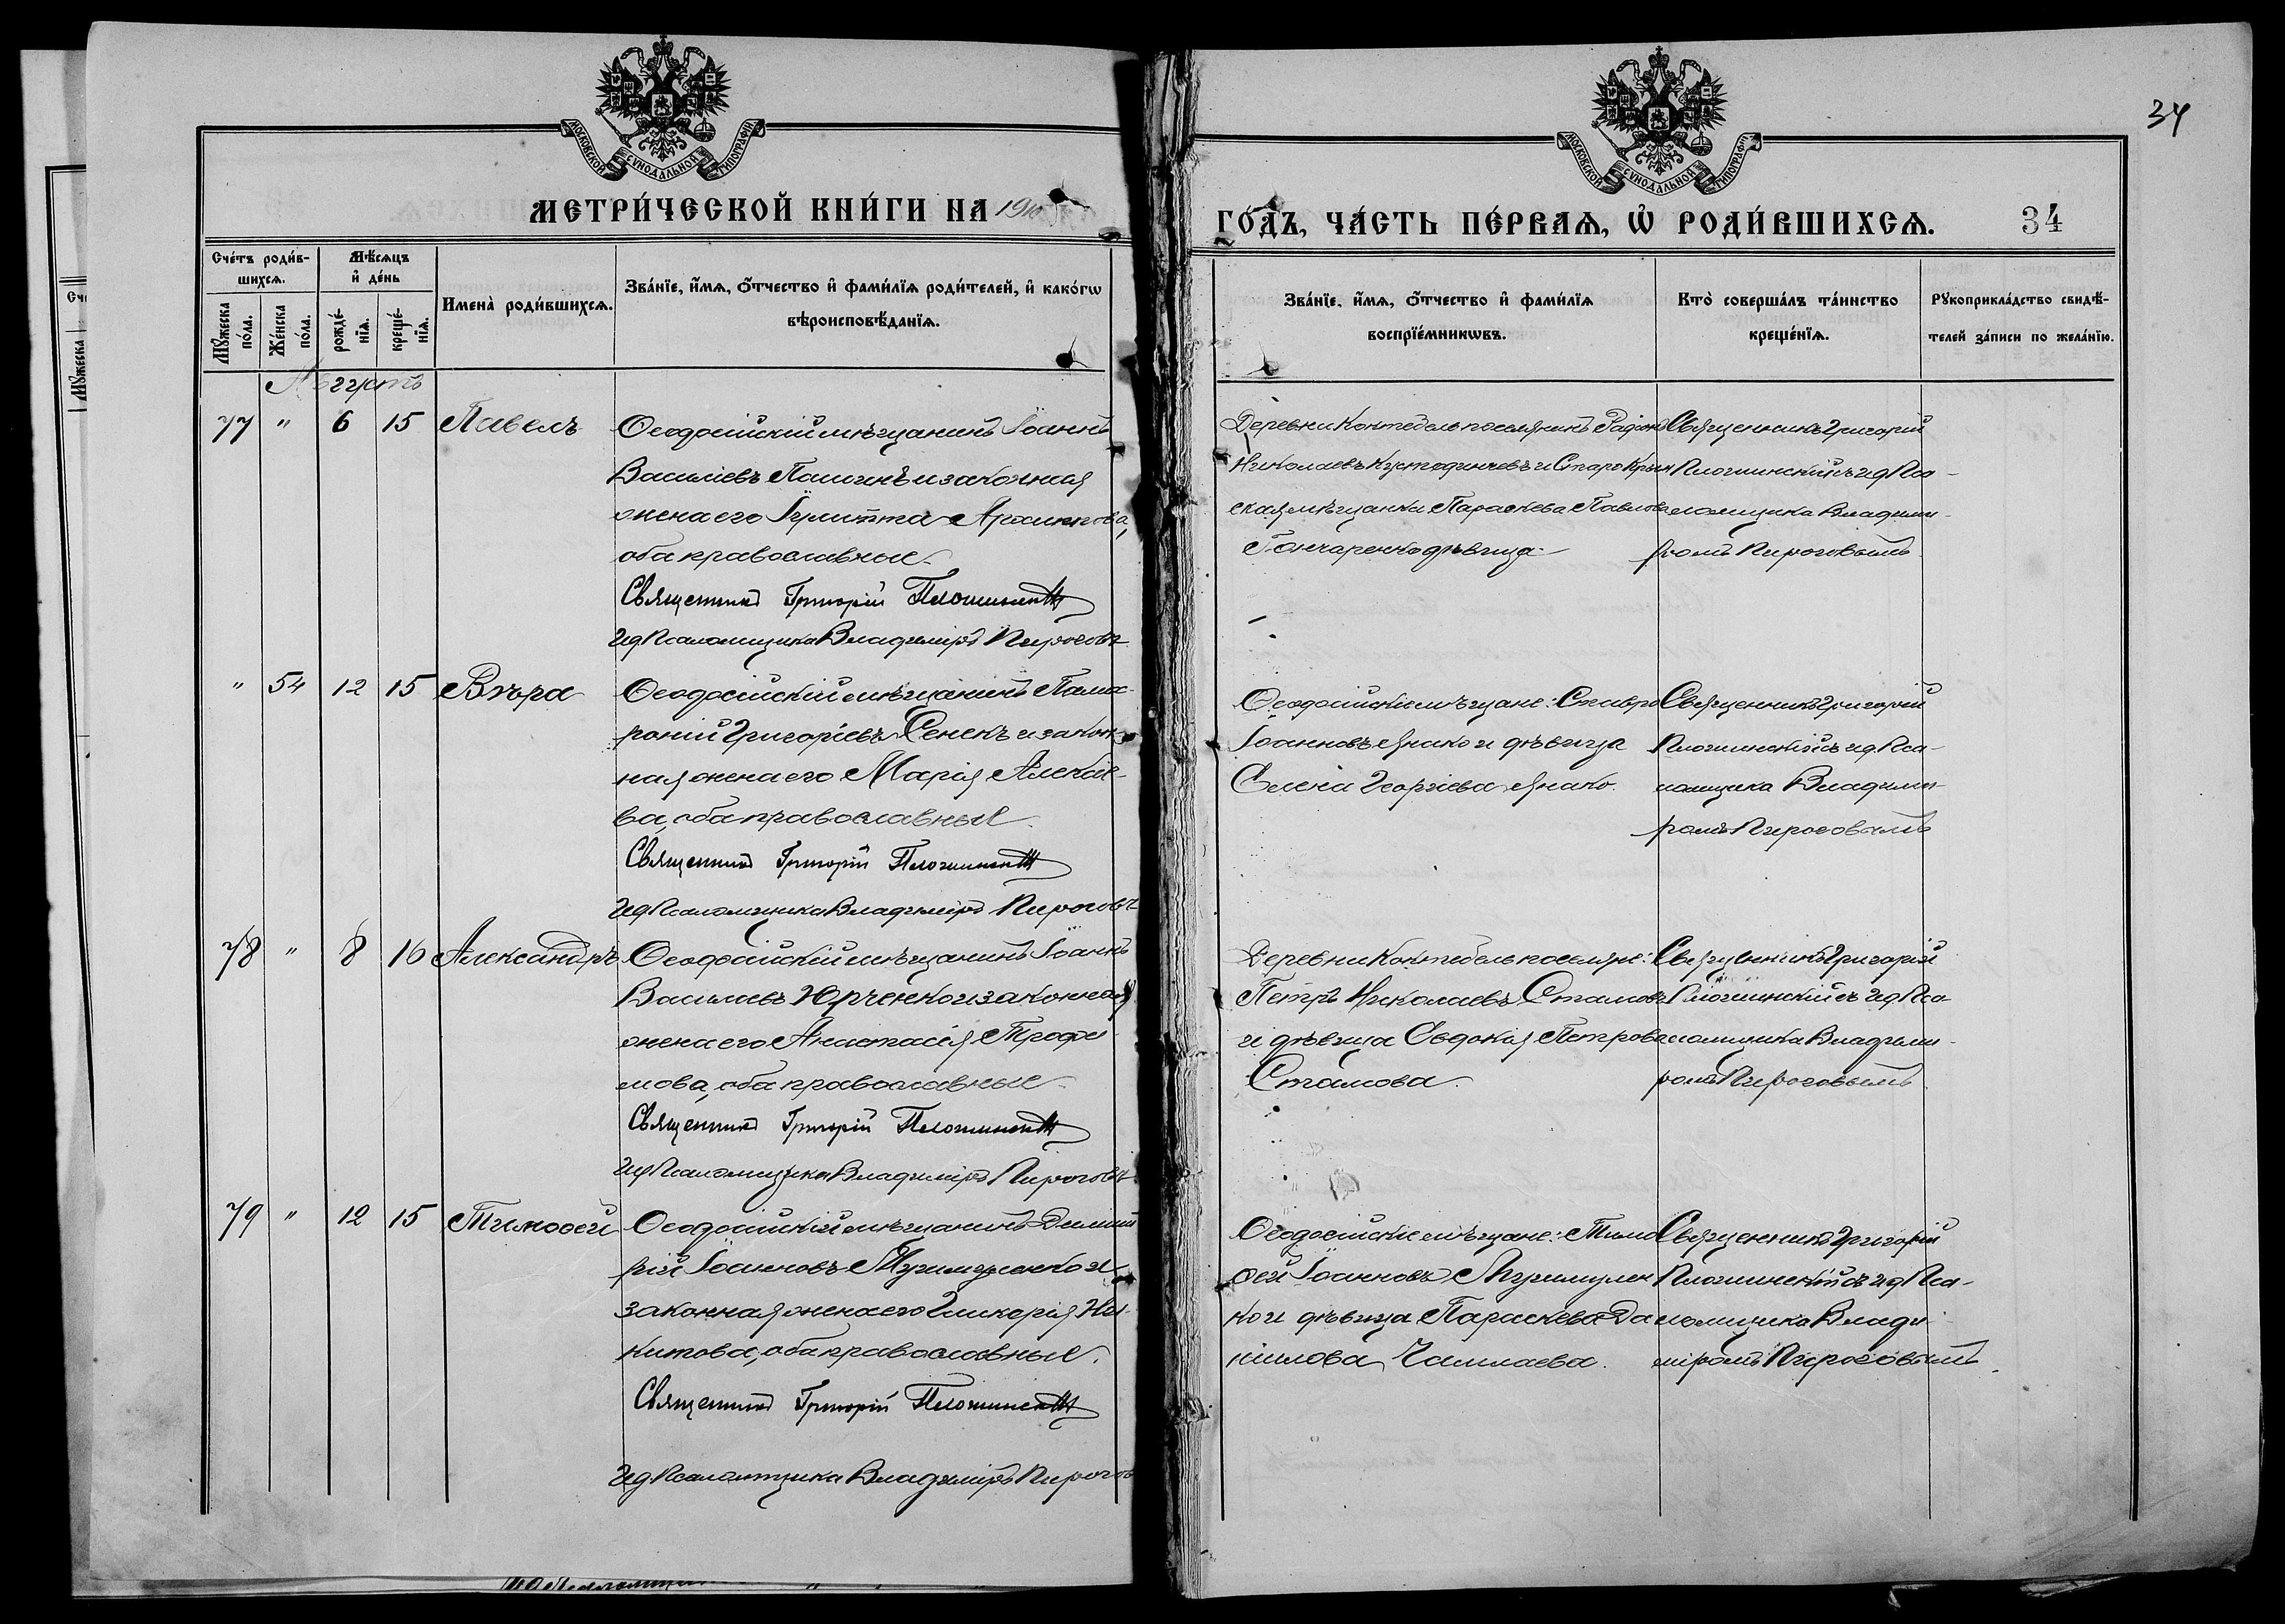 34
МОСКОВСКОЙ СѴНОДАЛЬНОЙ ТИПОГРАФІИ
МОСКОВСКОЙ СѴНОДАЛЬНОЙ ТИПОГРАФІИ
МЕТРИ́ЧЕСКОЙ КНИ́ГИ НА 1910
ГО́ДЪ, ЧА́СТЬ ПЕ́РВАѦ, Ѡ҆ РОДИ́ВШИХСѦ. 34
Сче́тъ роди́в-
шихсѧ.
Мѣ́сѧцъ
и҆ де́нь
Мꙋ́жеска
по́ла.
Же́нска
по́ла.
рожде́-
нїѧ.
креще́-
нїѧ.
Имена̀ роди́вшихсѧ.
Зва́нїе, и҆́мѧ, ѻ҆́тчество и҆ фами́лїѧ роди́телей, и҆ како́гѡ
вѣроисповѣ́данїѧ.
Зва́нїе, и҆́мѧ, ѻ҆́тчество и҆ фами́лїѧ
воспрїе́мникѡвъ.
Кто̀ соверша́лъ та́инство
креще́нїѧ.
Рꙋкоприкла́дство свидѣ́-
телей за́писи по жела́нїю.
Августъ
77 " 6 15 Павелъ
Ѳеодосійскій мѣщанинъ Іоаннъ
Василіевъ Пашинъ и законная
жена его Іулитта Архипова,
оба православные.
Священникъ Григорій
И д Псаломщика Владиміръ Пироговъ
Деревни Коктебель поселянинъ
Николаевъ и Старо Крым
ская мѣщанка Параскева Павлова
Гончаренко дѣвица.
Священникъ Григорій
съ и д Пса-
ломщика Владими-
ромъ Пироговымъ.
" 54 12 15 Вѣра
Ѳеодосійскій мѣщанинъ
Григоріевъ Сенекъ и закон-
ная жена его Марія Алексѣе-
ва, оба православные.
Священникъ Григорій
И д Псаломщика Владиміръ Пироговъ
Ѳеодосійскіе мѣщане: Ставро
Іоанновъ Янако и дѣвица
Елена Георгіева Янако.
Священникъ Григорій
съ и д Пса-
ломщика Владими-
ромъ Пироговымъ
78 " 8 16 Александръ
Ѳеодосійскій мѣщанинъ Іоаннъ
Василіевъ Юрченко и законная
жена его Анастасія Трофи-
мова, оба православные.
Священникъ Григорій
И д Псаломщика Владиміръ Пироговъ
Деревни Коктебель поселяне:
Петръ Николаевъ Стамовъ
и дѣвица Евдокія Петрова
Стамова.
Священникъ Григорій
съ и д Пса-
ломщика Владими-
ромъ Пироговымъ
79 " 12 15 Тимоѳей
Ѳеодосійскій мѣщанинъ Димит
рій Іоанновъ и
законная жена его Гликерія Ни-
китова, оба православные.
Священникъ Григорій
И д Псаломщика Владиміръ Пирогов
Ѳеодосійскіе мѣщане: Тимо
ѳей Іоанновъ
ко и дѣвица Параскева Да
ніилова Чамлаева.
Священникъ Григорій
съ и д Пса-
ломщика Влади-
міромъ Пироговымъ.